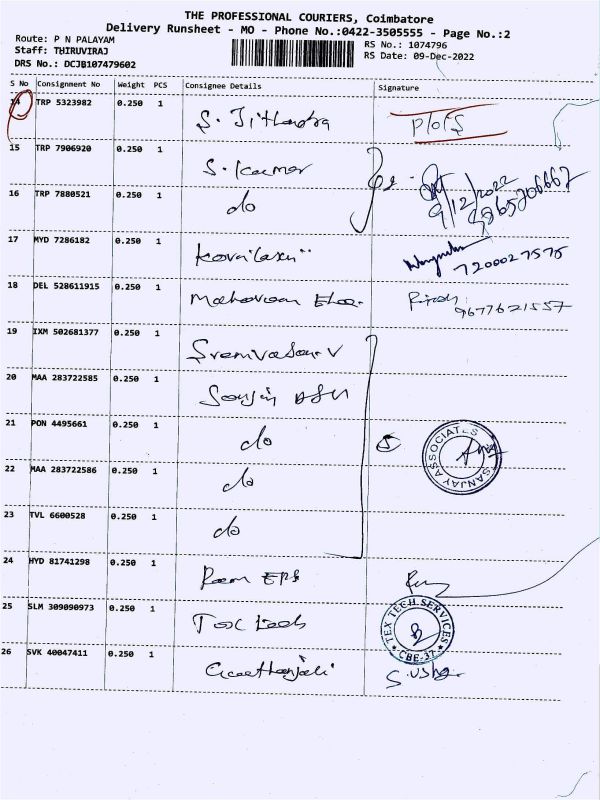 THE PROFESSIONAL COURIERS, Coimbatore
Delivery Runsheet - MO - Phone No.:0422-3505555 - Page No.:2
Route: P N PALAYAM
Staff: THIRUVIRAJ
DRS No.: DCJB107479602
RS No.: 1074796
RS Date: 09-Dec-2022
S No Consignment No Weight PCS Consignee Details Signature
14 TRP 5323982 0.250 1 S. Jithendra
15 TRP 7906920 0.250 1 S. Kumar
16 TRP 7880521 0.250 1 do 9/12/2022
17 MYD 7286182 0.250 1 7200027575
18 DEL 528611915 0.250 1 9677621557
19 IXM 502681377 0.250 1
20 MAA 283722585 0.250 1
21 PON 4495661 0.250 1 do 5 SANJAY ASSOCIATES
22 MAA 283722586 0.250 1 do
23 TVL 6600528 0.250 1 do
24 HYD 81741298 0.250 1
25 SLM 309090973 0.250 1 TEX TECH SERVICES CBE-37
26 SVK 40047411 0.250 1 S. Usha